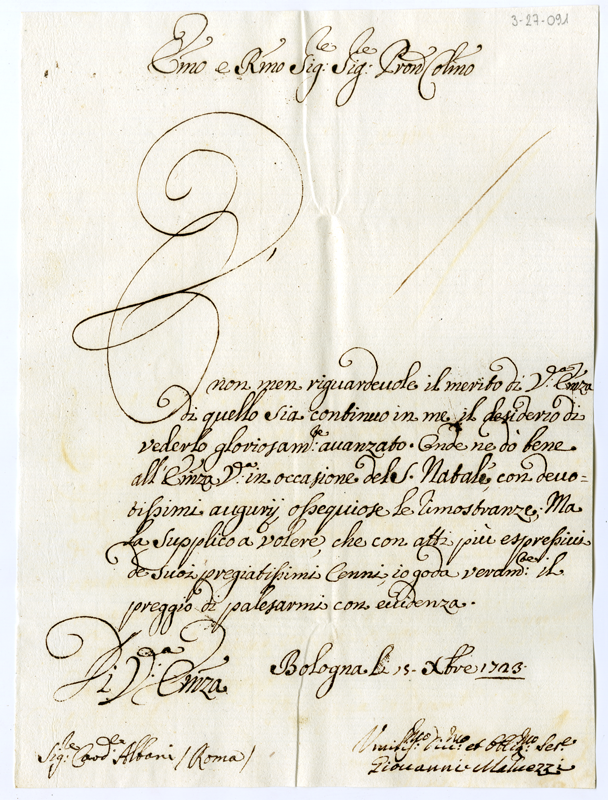 3-27-091
Emo e Rmo Sig.re Sig.re Pron Colmo
È non men riguardevole il merito di V.ra Emza
di quello sia continuo in me il desiderio di
vederlo gloriosam.te avanzato. Onde ne dò bene
all'Emza V.ra in occasione del S. Natale, con devo=
tissimi augurij ossequiose le dimostranze. Ma
la supplico a volere, che con atti più espressivi
de suoi pregiatissimi Cenni, io goda veram.te il
preggio di palesarmi con evidenza.
Di V.ra Emza
Bologna li 15. Xbre 1723.
Sig.re Card.le Albani (Roma)
Umiliss.mo Div.mo et Obblig.mo Ser.e
Giovanni Malvezzi